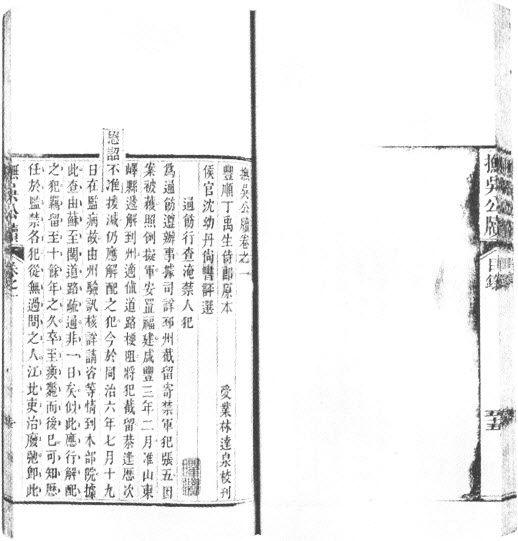 撫吳公牘
目錄
撫吳公牘卷之一
豐順丁禹生侍郎原本
侯官沈幼丹尚書評選
受業林達泉校刊
通飭行查淹禁人犯
為通飭遵辦事據司詳邳州截留寄禁軍犯張五因
案被獲照例擬軍安置福建咸豐三年二月准山東
嶧縣遞解到州適値道路梗阻將犯截留恭逢歷次
恩詔不准援減仍應解配之犯今於同治六年七月十九
日在監病故由州驗訊核詳請咨等情到本部院據
此查由蘇至閩道路疏通非一日矣似此應行解配
之犯羈留至十餘年之久卒至瘐斃而後已可知歷
任於監禁各犯從無過問之人江北吏治廢弛卽此
撫吳公牘
卷之一